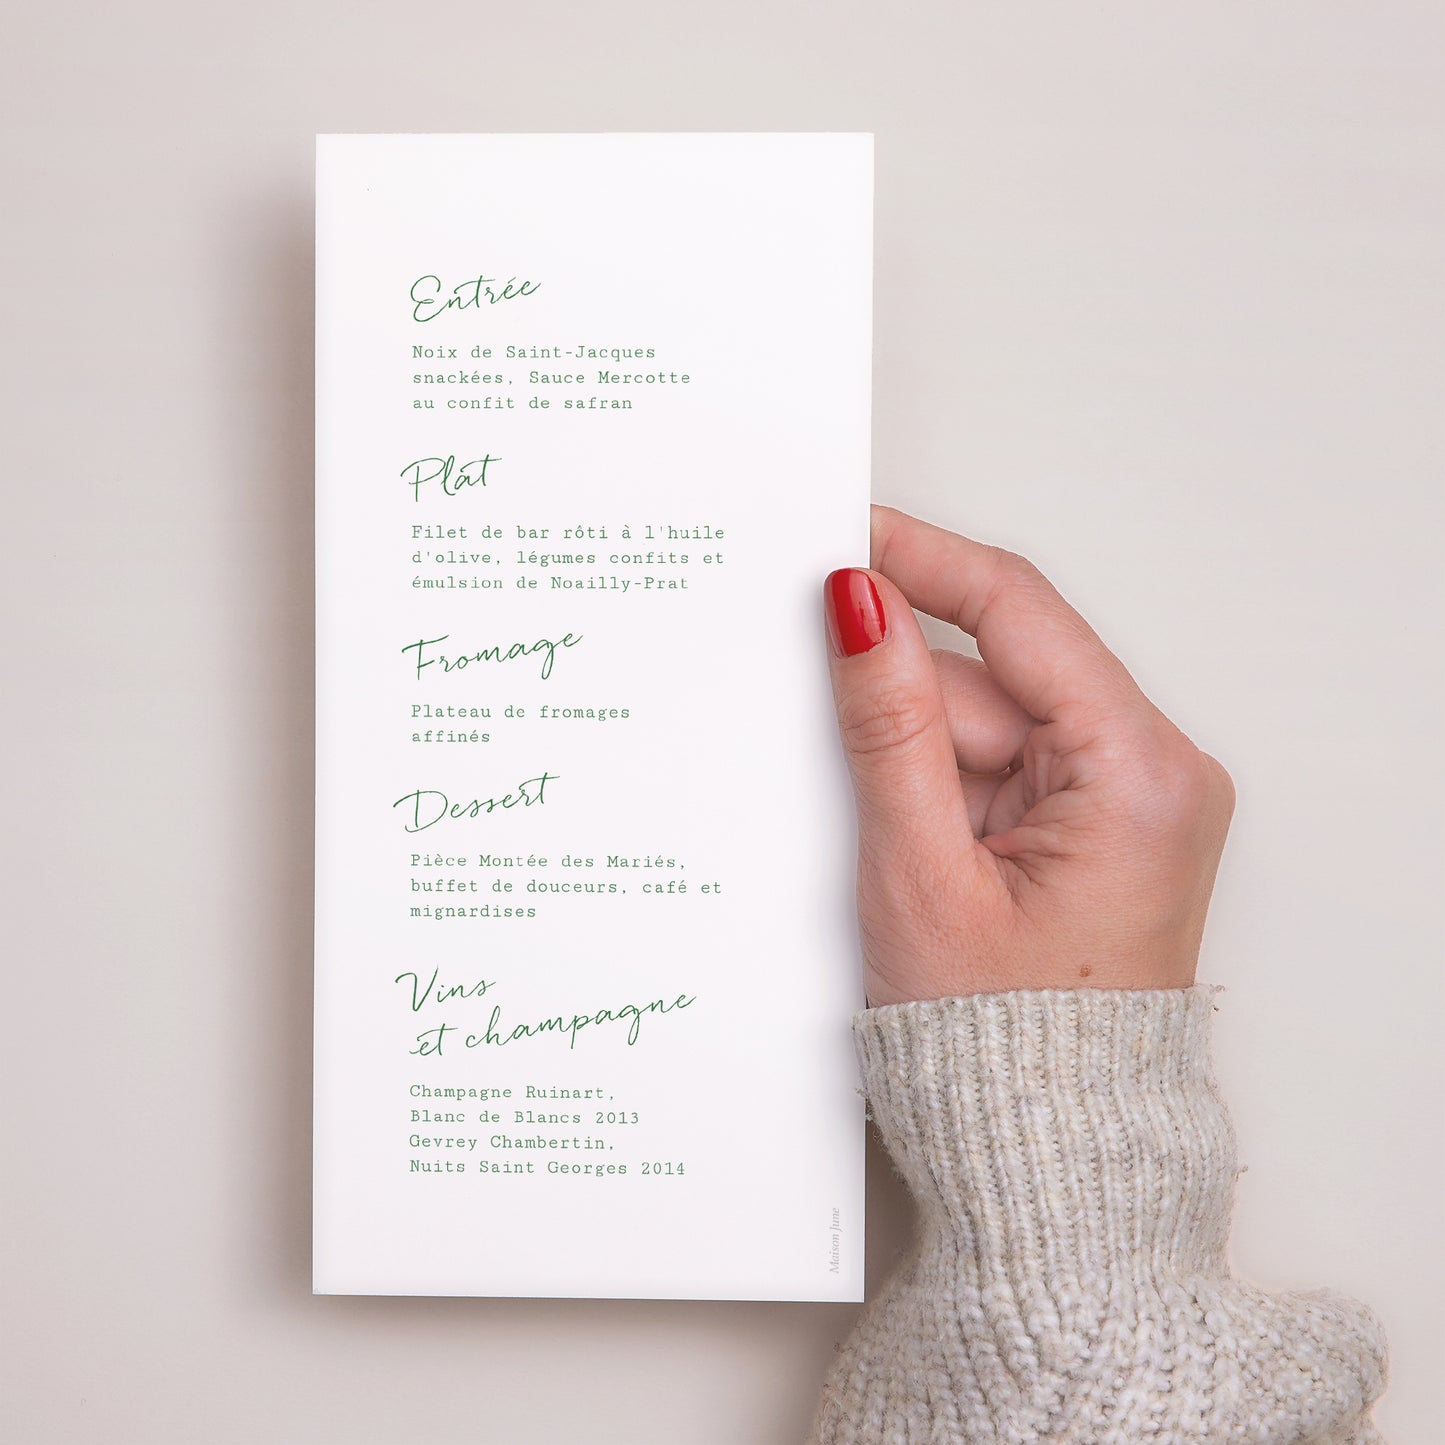 Entrée
Noix de Saint-Jacques
snackées, Sauce Mercotte
au confit de safran
Plât
Filet de bar rôti à l'huile
d'olive, légumes confits et
émulsion de Noailly-Prat
Fromage
Plateau de fromages
affinés
Dessert
Pièce Montée des Mariés,
buffet de douceurs, café et
mignardises
Vins
et champagne
Champagne Ruinart,
Blanc de Blancs 2013
Gevrey Chambertin,
Nuits Saint Georges 2014
Maison June